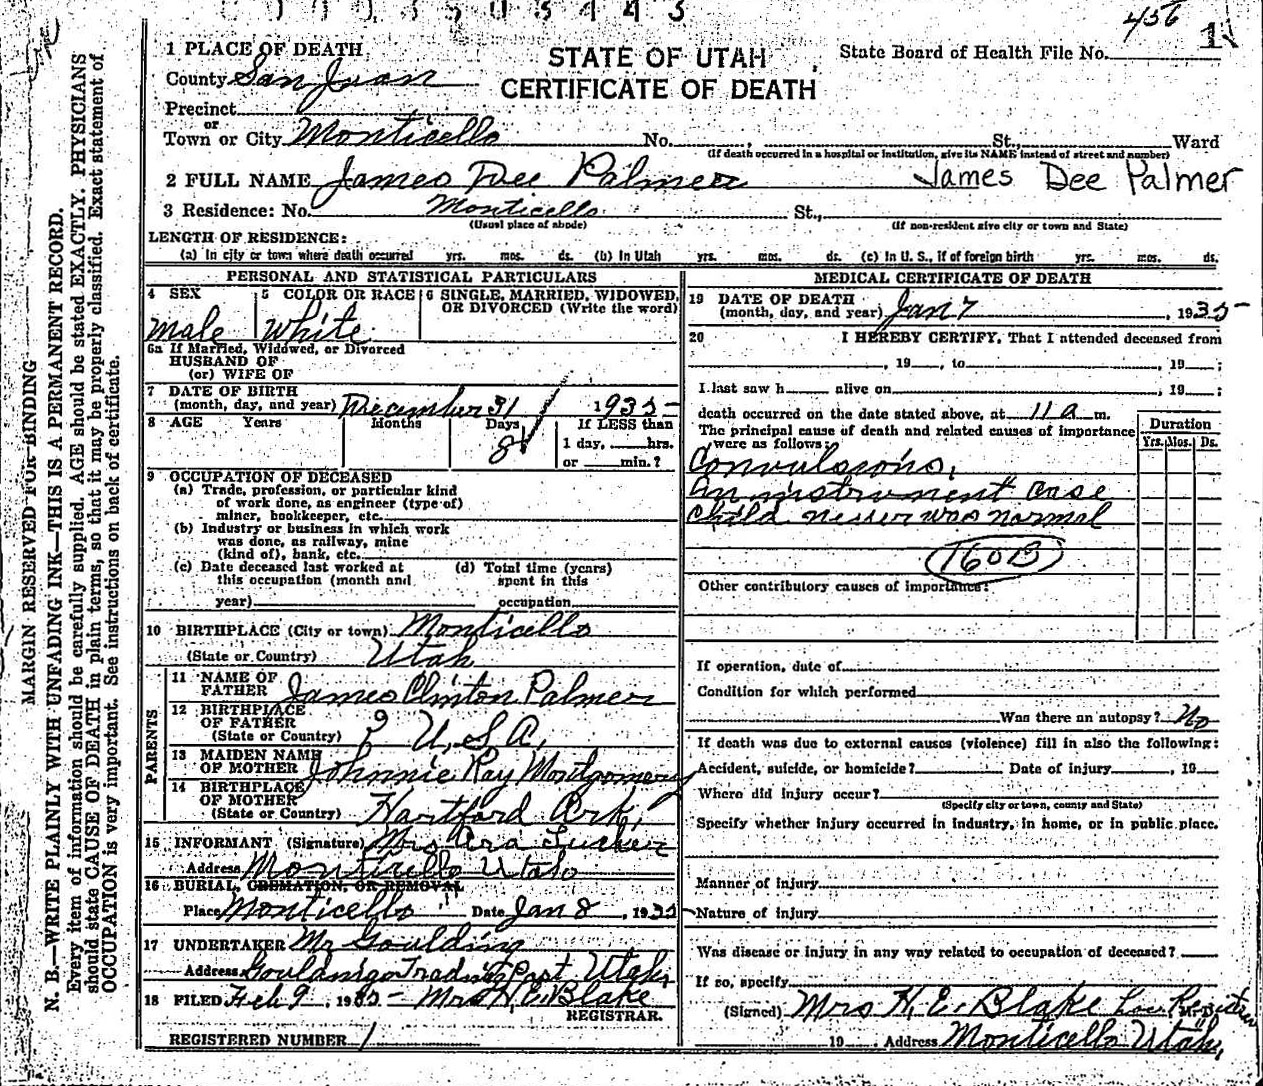 456 1
1 PLACE OF DEATH
STATE OF UTAH
CERTIFICATE OF DEATH
State Board of Health File No.
County San Juan
Precinct
or
Town or City Monticello No. , St., Ward
(If death occurred in a hospital or institution, give its NAME instead of street and number)
2 FULL NAME James Dee Palmer James Dee Palmer
3 Residence: No. Monticello St.,
(Usual place of abode) (If non-resident give city or town and State)
LENGTH OF RESIDENCE:
(a) In city or town where death occurred yrs. mos. ds. (b) In Utah yrs. mos. ds. (c) In U. S., if of foreign birth yrs. mos. ds.
PERSONAL AND STATISTICAL PARTICULARS
4 SEX 5 COLOR OR RACE 6 SINGLE, MARRIED, WIDOWED,
OR DIVORCED (Write the word)
male white
6a If Married, Widowed, or Divorced
HUSBAND OF
(or) WIFE OF
7 DATE OF BIRTH
(month, day, and year) December 31 1935
8 AGE Years Months Days If LESS than
8 1 day, hrs.
or min.?
9 OCCUPATION OF DECEASED
(a) Trade, profession, or particular kind
of work done, as engineer (type of)
miner, bookkeeper, etc.
(b) Industry or business in which work
was done, as railway, mine
(kind of), bank, etc.
(c) Date deceased last worked at (d) Total time (years)
this occupation (month and spent in this
year) occupation
10 BIRTHPLACE (City or town) Monticello
(State or Country) Utah
PARENTS
11 NAME OF
FATHER James Clinton Palmer
12 BIRTHPLACE
OF FATHER
(State or Country) ? U, S A,
13 MAIDEN NAME
OF MOTHER Johnnie Ray Montgomery
14 BIRTHPLACE
OF MOTHER
(State or Country) Hartford Ark,
15 INFORMANT (Signature) Mrs Ora Tucker
Address Monticello Utah
16 BURIAL, CREMATION, OR REMOVAL
Place Monticello Date Jan 8 , 1935
17 UNDERTAKER Mr Goulding
Address Trading Post Utah,
18 FILED Feb 9 , 1935 Mrs H, E. Blake
REGISTRAR.
REGISTERED NUMBER 1
MEDICAL CERTIFICATE OF DEATH
19 DATE OF DEATH
(month, day, and year) Jan 7 , 1935
20 I HEREBY CERTIFY, That I attended deceased from
, 19 , to , 19 ;
I last saw h alive on , 19 ;
death occurred on the date stated above, at 11 a m.
The principal cause of death and related causes of importance
were as follows:
Duration
Yrs. Mos. Ds.
Convulsions,
an instrument case
child never was normal
160B
Other contributory causes of importance:
If operation, date of
Condition for which performed
Was there an autopsy? No
If death was due to external causes (violence) fill in also the following:
Accident, suicide, or homicide? Date of injury , 19
Where did injury occur?
(Specify city or town, county and State)
Specify whether injury occurred in industry, in home, or in public place.
Manner of injury
Nature of injury
Was disease or injury in any way related to occupation of deceased?
If so, specify
(Signed) Mrs H. E. Blake
19 Address Monticello Utah,
MARGIN RESERVED FOR BINDING
N. B.—WRITE PLAINLY WITH UNFADING INK—THIS IS A PERMANENT RECORD.
Every item of information should be carefully supplied. AGE should be stated EXACTLY. PHYSICIANS
should state CAUSE OF DEATH in plain terms, so that it may be properly classified. Exact statement of
OCCUPATION is very important. See instructions on back of certificate.